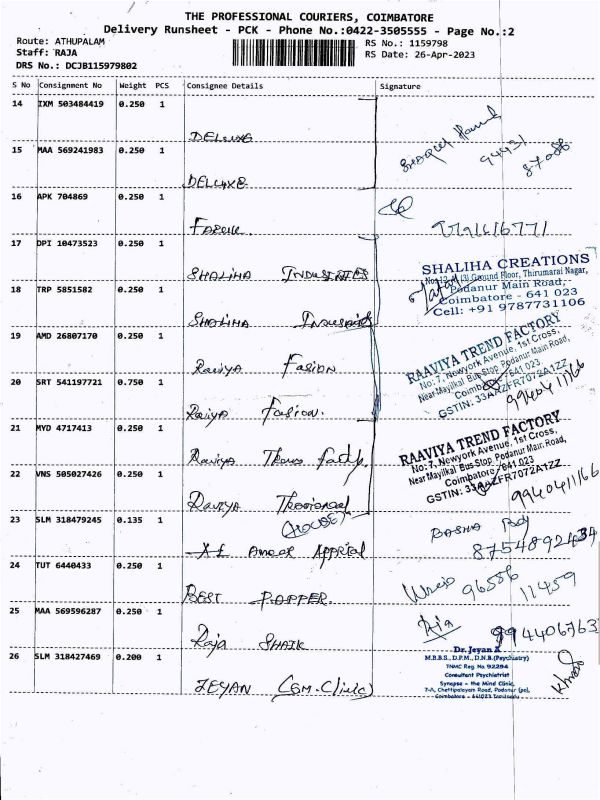 THE PROFESSIONAL COURIERS, COIMBATORE
Delivery Runsheet - PCK - Phone No.:0422-3505555 - Page No.:2
Route: ATHUPALAM
Staff: RAJA
DRS No.: DCJB115979802
RS No.: 1159798
RS Date: 26-Apr-2023
S No Consignment No Weight PCS Consignee Details Signature
14 IXM 503484419 0.250 1
DELUXE
94431
87088
15 MAA 569241983 0.250 1
DELUXE
16 APK 704869 0.250 1
17 DPI 10473523 0.250 1
SHALIHA INDUSTRIES
SHALIHA CREATIONS
No:12-A (3) Ground Floor, Thirumarai Nagar,
Podanur Main Road,
Coimbatore - 641 023
Cell: +91 9787731106
18 TRP 5851582 0.250 1
SHALIHA
19 AMD 26807170 0.250 1
Raviya Fasion
RAAVIYA TREND FACTORY
No: 7, Newyork Avenue, 1st Cross,
Near Mayilkal Bus Stop, Podanur Main Road,
Coimbatore 641 023
GSTIN: 33AAZFR7072A1ZZ
9940411166
20 SRT 541197721 0.750 1
Raviya Fasion.
21 MYD 4717413 0.250 1
Raviya
RAAVIYA TREND FACTORY
No: 7, Newyork Avenue, 1st Cross,
Near Mayilkal Bus Stop, Podanur Main Road,
Coimbatore 641 023
GSTIN: 33AAZFR7072A1ZZ
9940411166
22 VNS 505027426 0.250 1
Raviya
23 SLM 318479245 0.135 1
(HOUSE)
BASHA
8754892434
24 TUT 6440433 0.250 1
BEST PAPPER
96586 11459
25 MAA 569596287 0.250 1
Raja SHAIK
9944067637
26 SLM 318427469 0.200 1
JEYAN (Gm. Clinic)
Dr. Jeyan A
M.B.B.S., D.P.M., D.N.B.(Psychiatry)
TNMC Reg. No. 92294
Consultant Psychiatrist
Synapse - the Mind Clinic,
7-A, Chettipalayam Road, Podanur (po),
Coimbatore - 641023